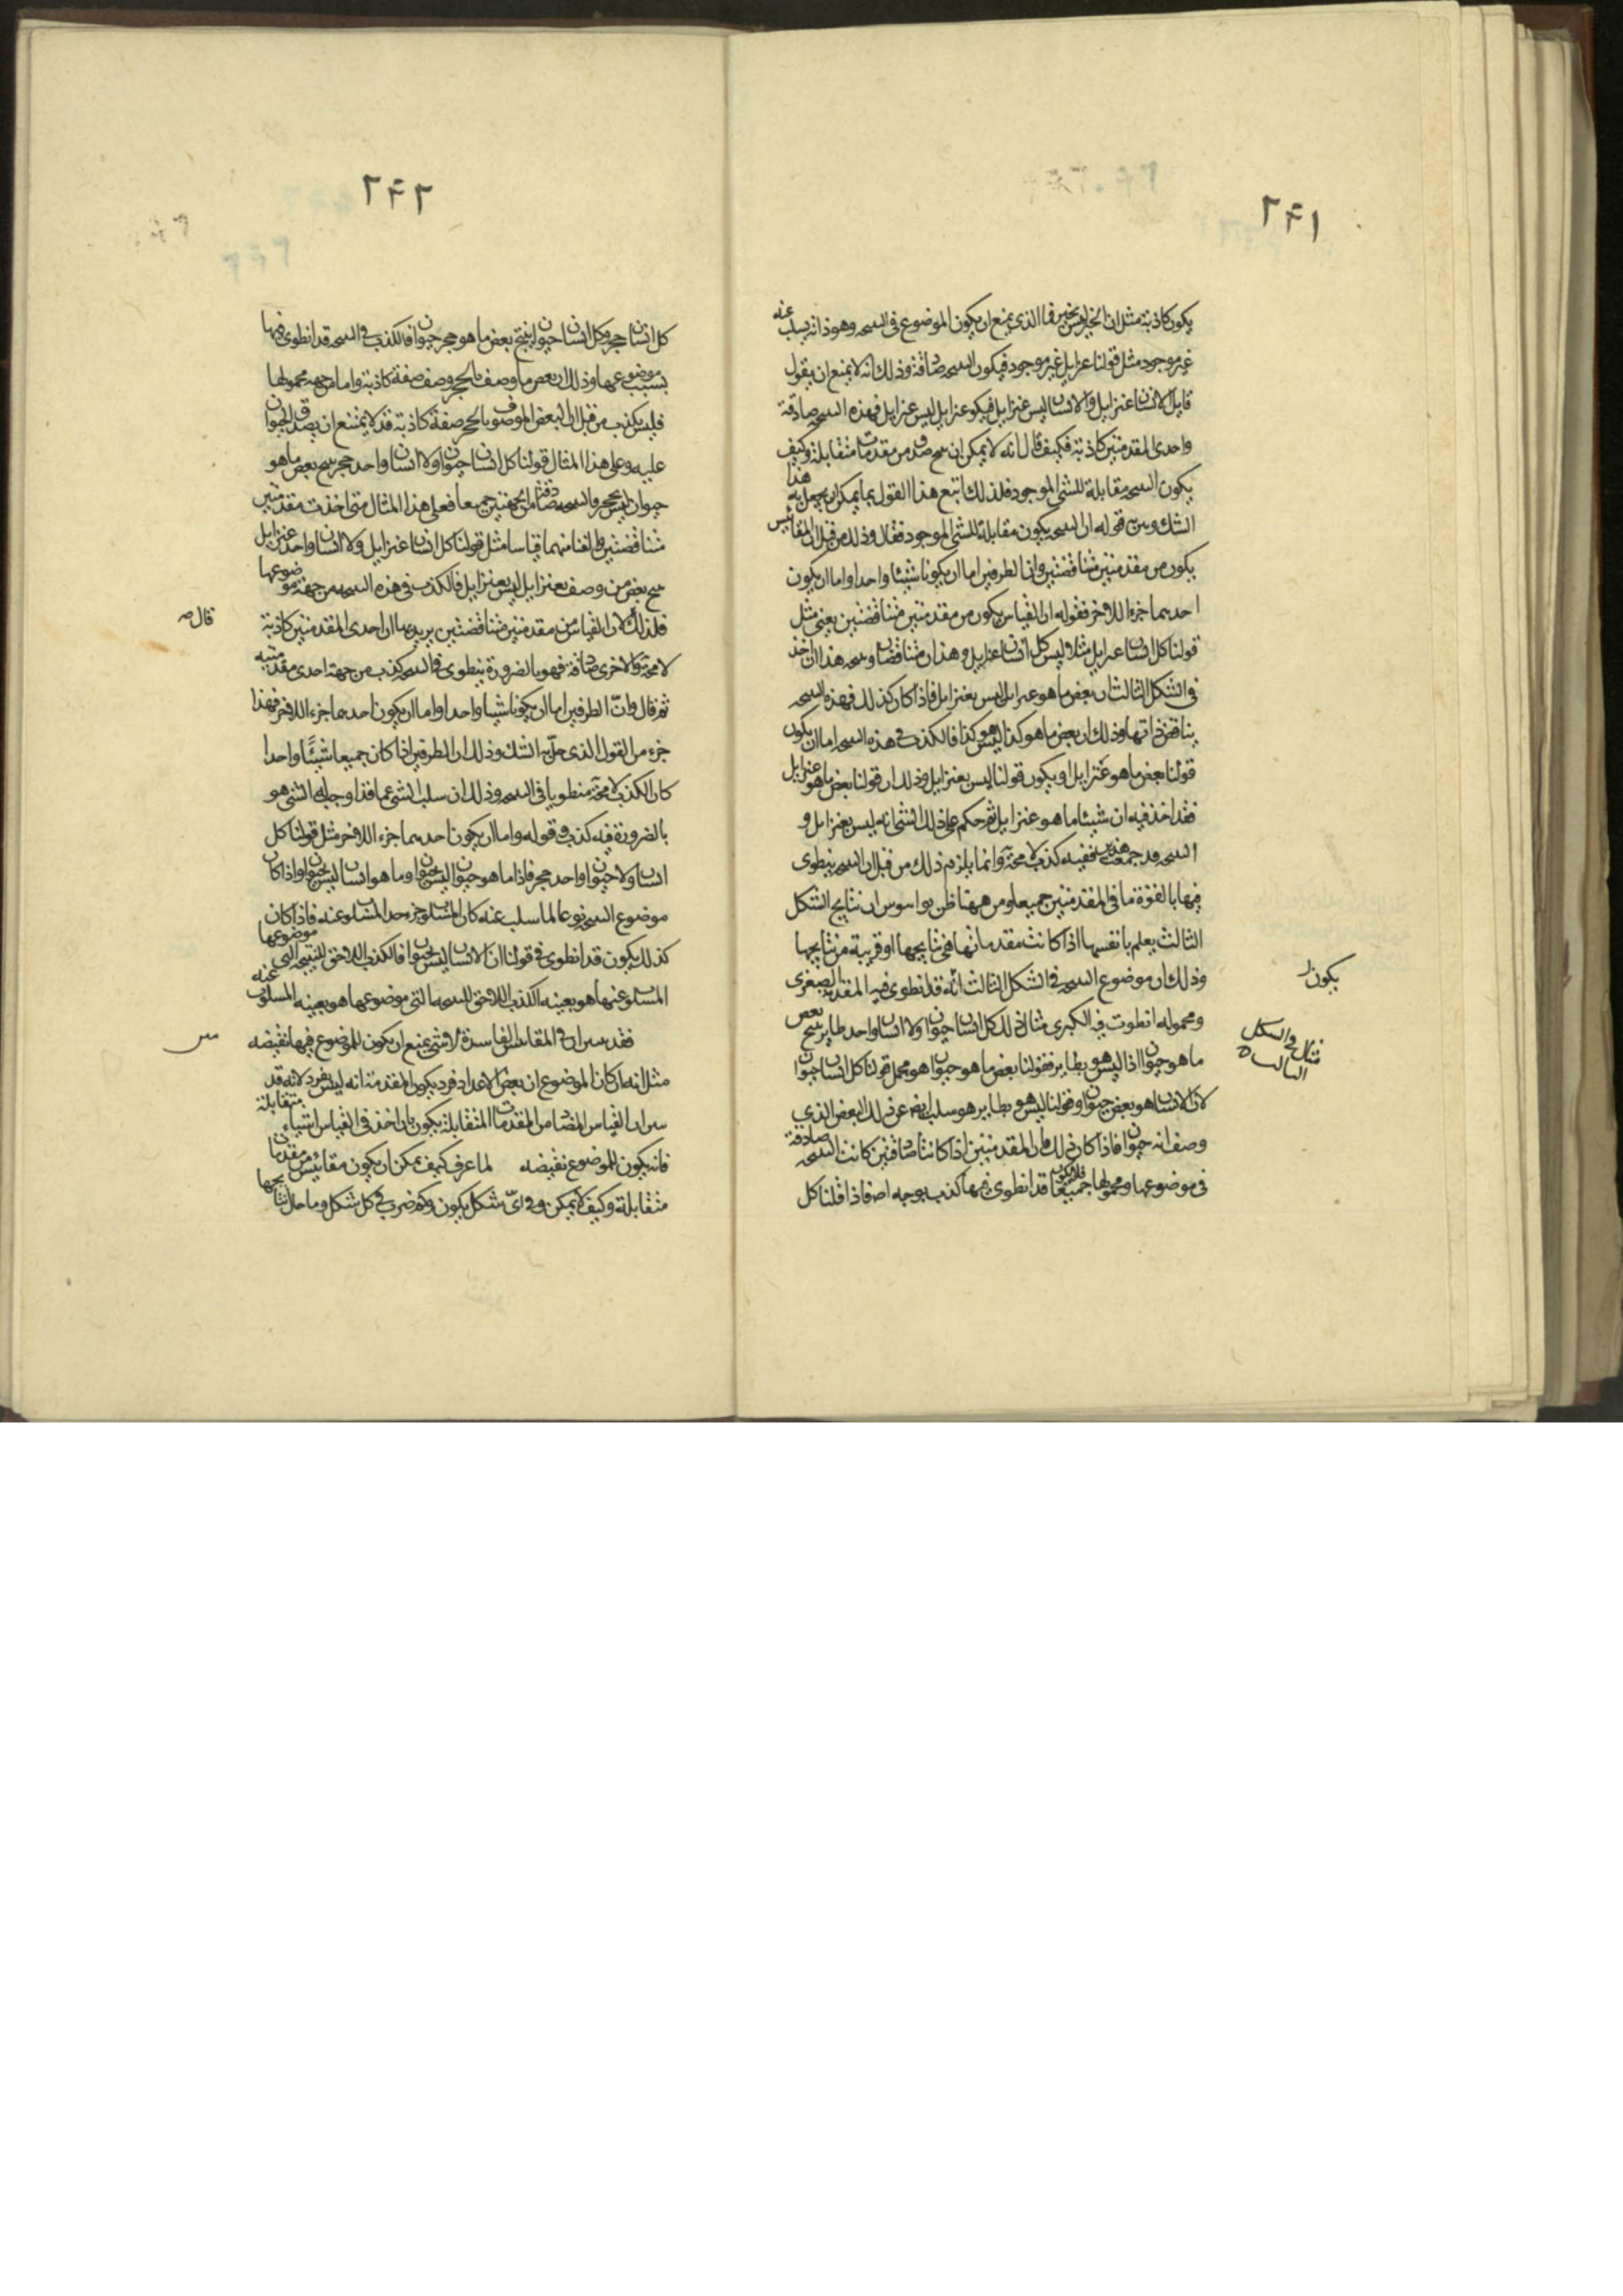 ٢٤١
يكون كاذبة مثل ان الخير ليس بخير فما الذى يمنع ان يكون الموضوع فى النتيجه وهو ذاته يسلب عنه
غير موجود مثل قولنا عنزايل غير موجود فيكون النتيجه صادقة وذلك انه لا يمنع ان يقول
قايل الانسان عنزايل والانسان ليس عنزايل فيكون عنزايل ليس عنزايل فهذه النتيجه صادقة
واحدى المقدمتين كاذبة فكيف قال انه لا يمكن ان ينتج صدق من مقدمات متقابلة وكيف
يكون النتيجه مقابلة للشئ الموجود فلذلك اتبع هذا القول بما يمكن ان يحل به هذا
الشك وبين قوله ان النتيجه يكون مقابلة للشئ الموجود فقال وذلك من قبل ان المقائيس
يكون من مقدمتين متناقضتين وان الطرفين اما ان يكونا شيئا واحدا واما ان يكون
احدهما جزءا للاخر فقوله ان القياس يكون من مقدمتين متناقضتين يعنى مثل
قولنا كل انسان عنزايل مثلا وليس كل انسان عنزايل وهذان متناقضان ونتيجه هذا ان اخذ
فى الشكل الثالث ان بعض ما هو عنزايل ليس بعنزايل فاذا كان كذلك فهذه النتيجه
يناقض ذاتها وذلك ان بعض ما هو كذا ليس هو كذا فالكذب فى هذه النتيجه اما ان يكون
قولنا بعض ما هو عنزايل او يكون قولنا ليس بعنزايل وذلك ان قولنا بعض ما هو عنزايل
فقد اخذ فيه ان شيئا ما هو عنزايل ثم حكم على ذلك الشئ انه ليس بعنزايل و
النتيجه قد جمعت هذين ففيه كذب لا محة وانما يلزم ذلك من قبل ان النتيجه ينطوى
فيها بالقوة ما فى المقدمتين جميعا ومن ههنا ظن بواسوس ان نتايج الشكل
الثالث يعلم بانفسها اذا كانت مقدماتها فى نتايجها او قريبة من نتايجها
وذلك ان موضوع النتيجه فى الشكل الثالث انه قد انطوى فيه المقدمه الصغرى
ومحموله انطوت فيه الكبرى مثال ذلك كل انسان حيوان ولا انسان واحد طاير ينتج بعض
ما هو حيوان اذا ليس هو بطاير فقولنا بعض ما هو حيوان هو مجمل قولنا كل انسان حيوان
لان الانسان هو بعض حيوان وقولنا ليس هو بطاير هو سلب ايض عن ذلك البعض الذى
وصف انه حيوان فاذا كان ذلك فان المقدمتين اذا كانتا صادقتين كانت النتيجه صادقة
فى موضوعها ومحمولها جميعا فلا يكون قد انطوى فيها كذب بوجه اصلا فاذا قلنا كل
يكون
مثال فى الشكل
الثالث
٢٤٢
كل انسان حجر وكل انسان حيوان ينتج بعض ما هو حجر حيوان فالكذب فى النتيجه قد انطوى فيها
بسبب موضوعها وذلك ان بعض ما وصف بالحجر وصف صفة كاذبة واما من جهة محمولها
فليس يكذب من قبل ان البعض الموصوف بالحجر صفة كاذبة قد لا يمتنع ان يصدق الحيوان
عليه وعلى هذا المثال قولنا كل انسان حيوان ولا انسان واحد حجر ينتج بعض ما هو
حيوان ليس بحجر والنتيجه صادقة من الجهتين جميعا فعلى هذا المثال متى اخذت مقدمتين
متناقضتين والفنا منهما قياسا مثل قولنا كل انسان عنزايل ولا انسان واحد عنزايل
ينتج بعض من وصف بعنزايل ليس بعنزايل فالكذب فى هذه النتيجه من جهة موضوعها
فلذلك لان القياس من مقدمتين متناقضتين يريد بها ان احدى المقدمتين كاذبة
لا محة والاخرى صادقة فهو بالضرورة ينطوى فى النتيجه كذب من جهة احدى مقدمتيه
ثم قال وانّ الطرفين اما ان يكونا شيئا واحدا واما ان يكون احدهما جزءا للاخر فهذا
جزء من القول الذى حلّ به الشك وذلك ان الطرفين اذا كان جميعا شيئًا واحدا
كان الكذب لا محة منطويا فى النتيجه وذلك ان سلب الشئ عما قد اوجبله الشئ هو
بالضرورة فيه كذب وقوله واما ان يكون احدهما جزءا للاخر مثل قولنا كل
انسان ولا حيوان واحد حجر فاذا ما هو حيوان ليس حيوان وما هو انسان ليس حيوان واذا كان
موضوع النتيجه نوعا لما سلب عنه كان المسلوب جزء حد المسلوب عنه فاذا كان
كذلك يكون قد انطوى فى قولنا ان الانسان ليس بحيوان فالكذب اللاحق للنتيجه التى موضوعها
المسلوب عنها هو بعينه الكذب اللاحق للنتيجه التى موضوعها هو بعينه المسلوب عنه
فقد تبين ان فى المقائيس الفاسدة لا شئ يمنع ان يكون للموضوع فيها نقيضه
مثل انه ان كان الموضوع ان بعض الاعداد فرد يكون المقدمة انه ليس بفرد لانه قد
تبين ان القياس المضاد من المقدمات المتقابلة يكون بان اخذ فى القياس اشياء متقابلة
فانه يكون للموضوع نقيضه لما عرف كيف يمكن ان يكون مقائيس من مقدمات
متقابلة وكيف لا يمكن وفى اىّ شكل يكون وكم ضرب فى كل شكل وما حال نتايجها
قال